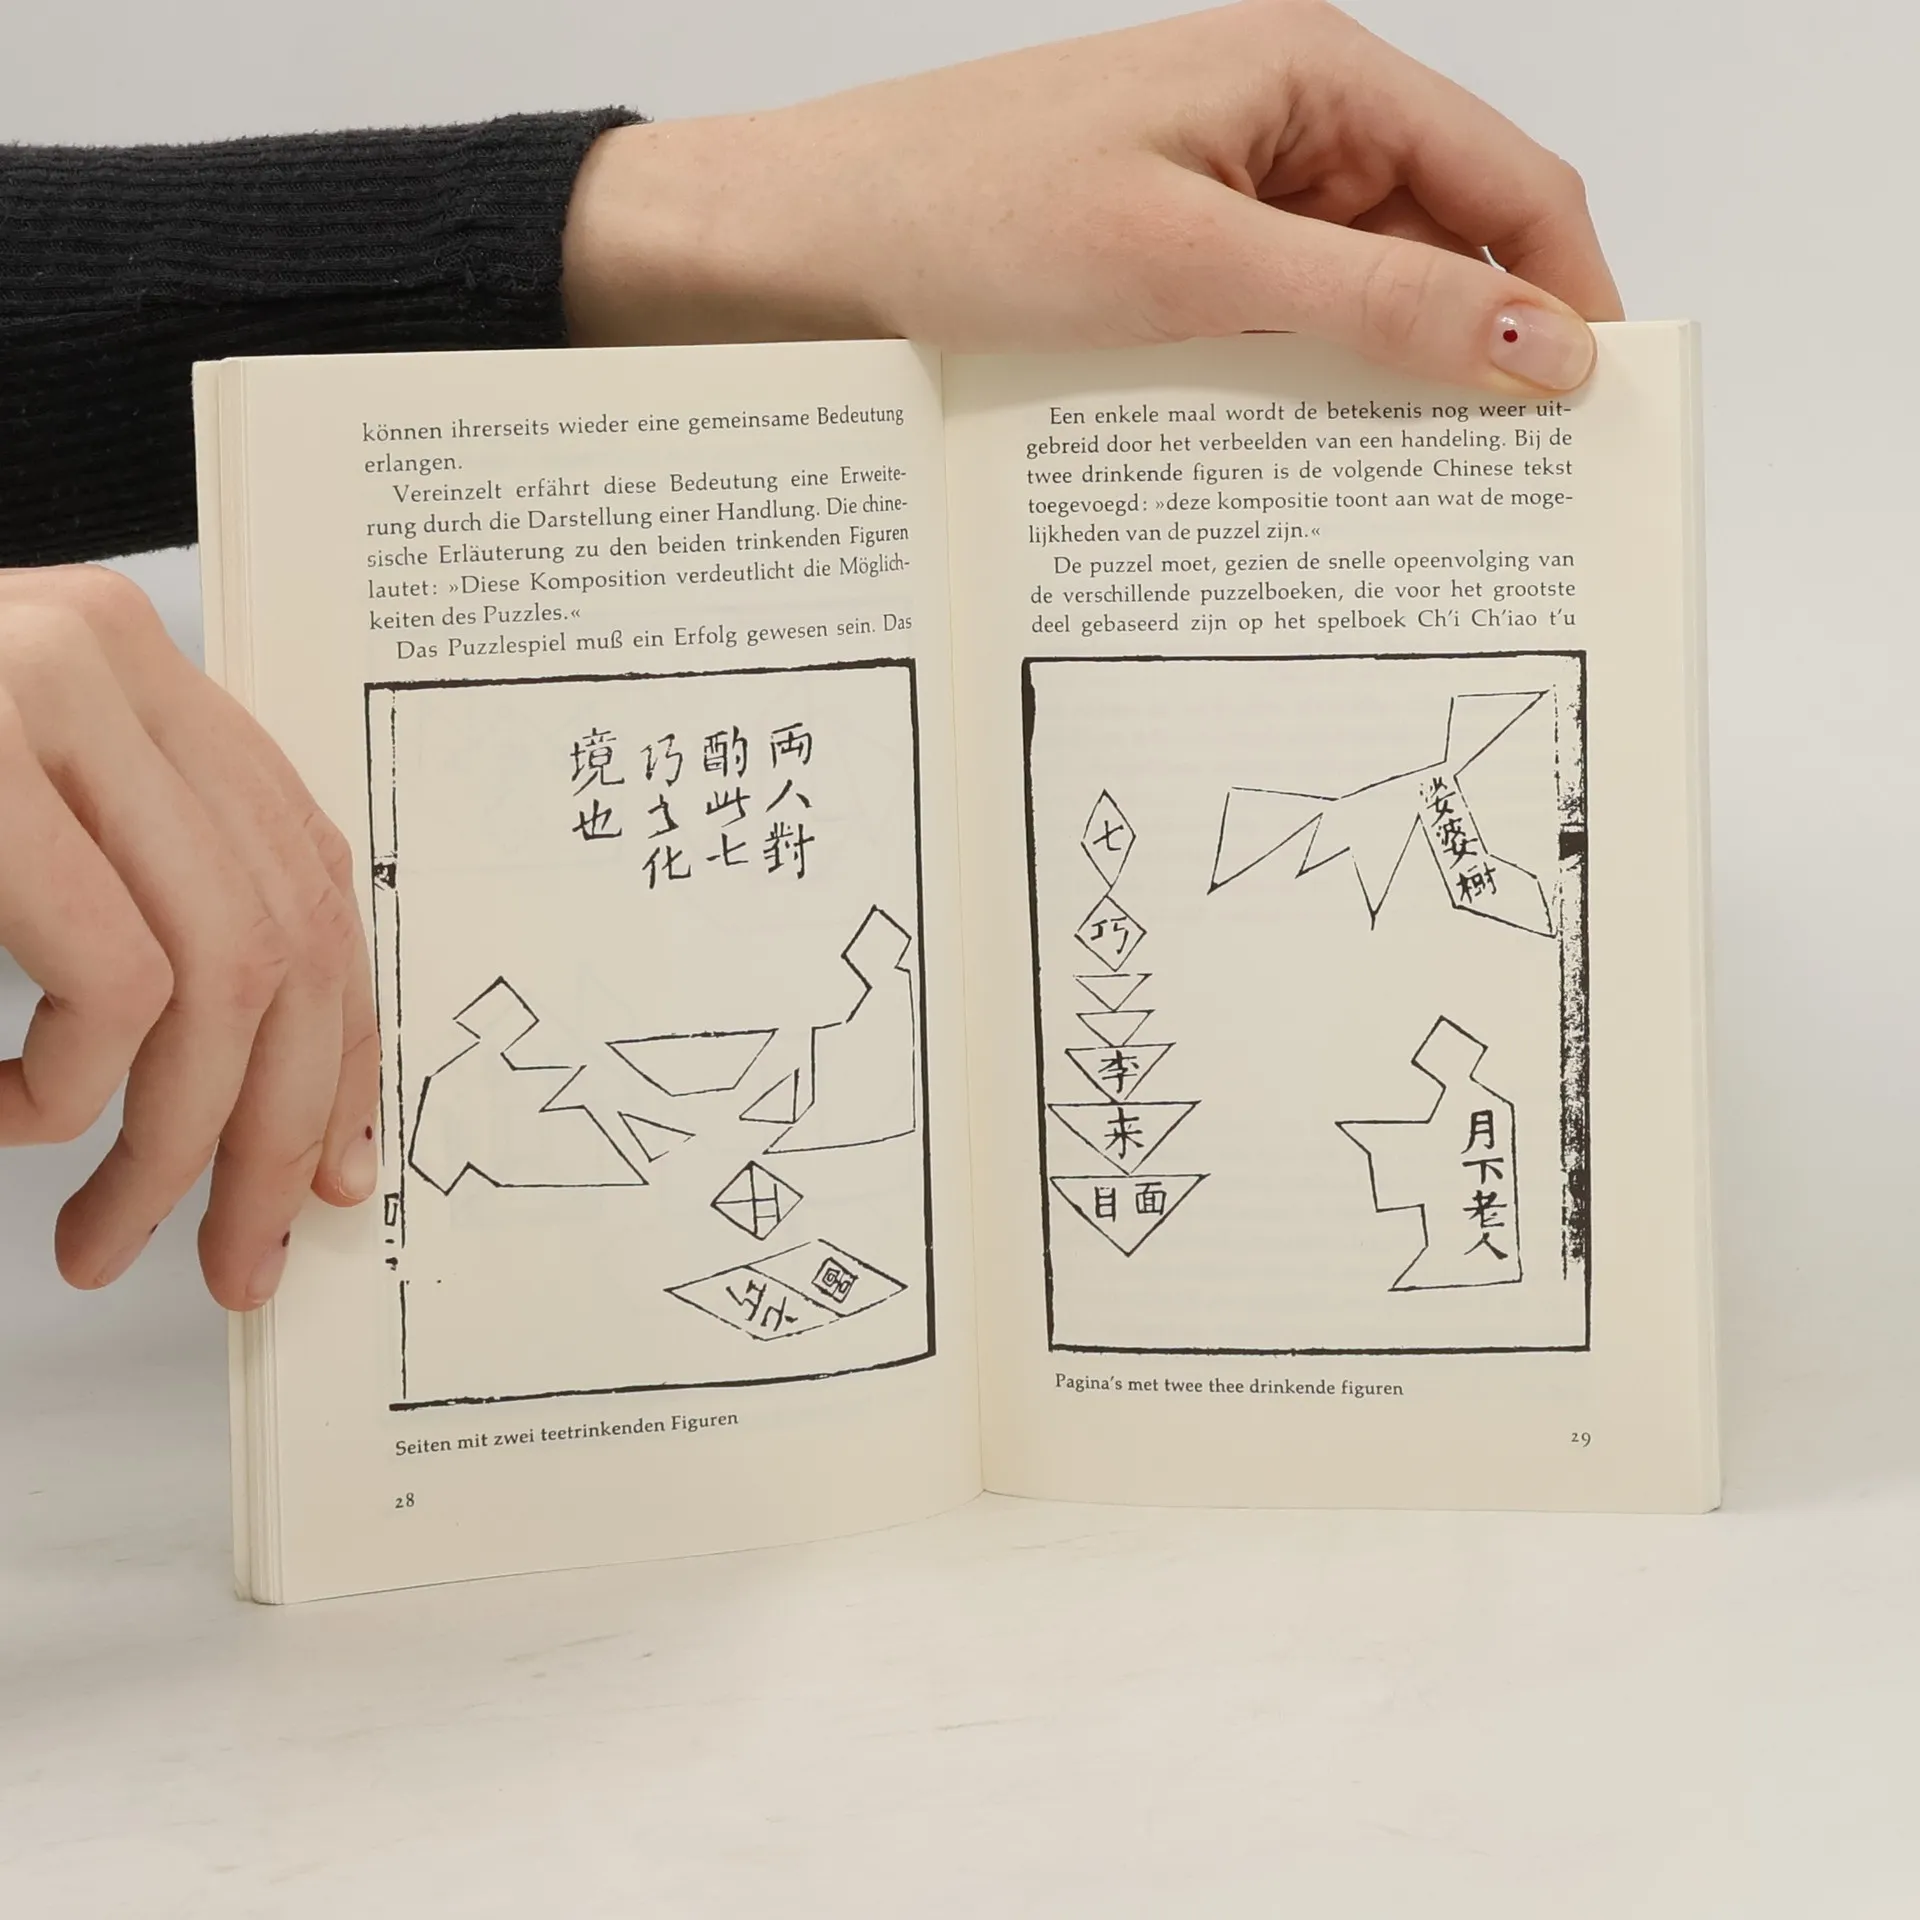 können ihrerseits wieder eine gemeinsame Bedeutung
erlangen.
Vereinzelt erfährt diese Bedeutung eine Erweite-
rung durch die Darstellung einer Handlung. Die chine-
sische Erläuterung zu den beiden trinkenden Figuren
lautet: »Diese Komposition verdeutlicht die Möglich-
keiten des Puzzles.«
Das Puzzlespiel muß ein Erfolg gewesen sein. Das
両人對
酌此七
巧之化
境也
圖
Seiten mit zwei teetrinkenden Figuren
28
Een enkele maal wordt de betekenis nog weer uit-
gebreid door het verbeelden van een handeling. Bij de
twee drinkende figuren is de volgende Chinese tekst
toegevoegd: »deze kompositie toont aan wat de moge-
lijkheden van de puzzel zijn.«
De puzzel moet, gezien de snelle opeenvolging van
de verschillende puzzelboeken, die voor het grootste
deel gebaseerd zijn op het spelboek Ch'i Ch'iao t'u
婆樹
月下老人
七
巧
李
来
面目
Pagina's met twee thee drinkende figuren
29